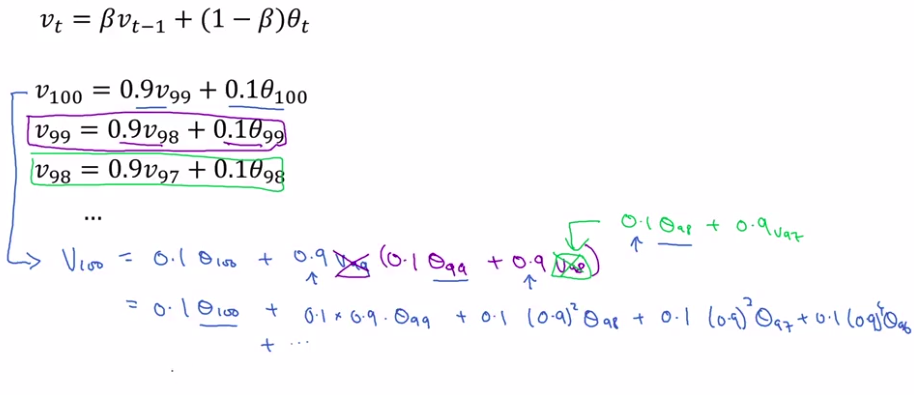 vₜ = βvₜ₋₁ + (1 − β)θₜ
v₁₀₀ = 0.9v₉₉ + 0.1θ₁₀₀
v₉₉ = 0.9v₉₈ + 0.1θ₉₉
v₉₈ = 0.9v₉₇ + 0.1θ₉₈
...
0.1 θ₉₈ + 0.9 v₉₇
V₁₀₀ = 0.1 θ₁₀₀ + 0.9 v₉₉ (0.1 θ₉₉ + 0.9 v₉₈)
= 0.1 θ₁₀₀ + 0.1 × 0.9 · θ₉₉ + 0.1 (0.9)² θ₉₈ + 0.1 (0.9)² θ₉₇ + 0.1 (0.9) θ₉₆
+ ...